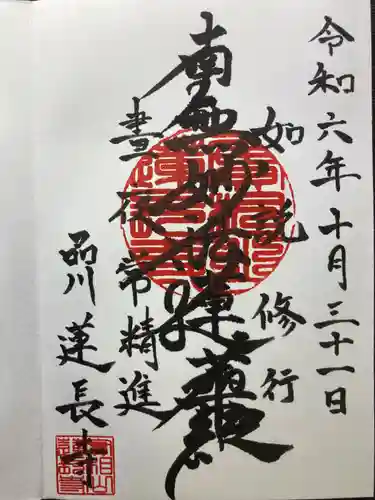 令和六年十月三十一日
如説修行
南無妙法蓮華経
晝夜常精進
品川 蓮長寺